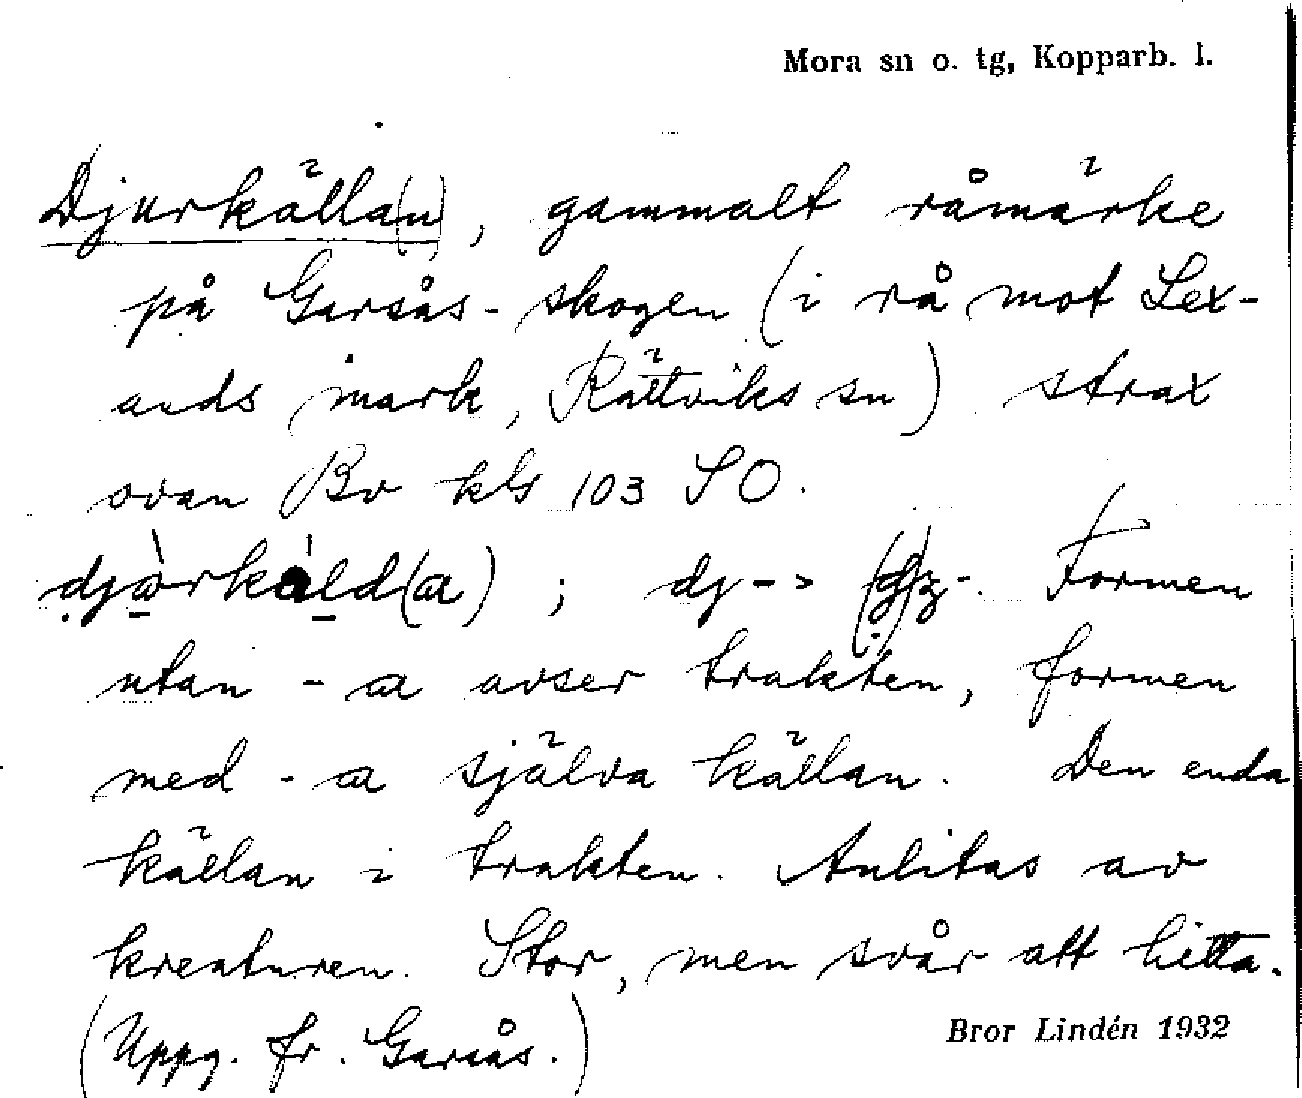 Mora sn o. tg, Kopparb. l.
Djurkälla(n), gammalt råmärke
på Garsås-skogen (i rå mot Lex-
ands mark, Rättviks sn) strax
ovan Bv kls 103 SO.
djårkäld(a) ; dj-> (d)z-. Formen
utan -a avser trakten, formen
med -a själva källan. Den enda
källan i trakten. Anlitas av
kreaturen. Stor, men svår att hitta.
(Uppg. fr. Garsås.)
Bror Lindén 1932